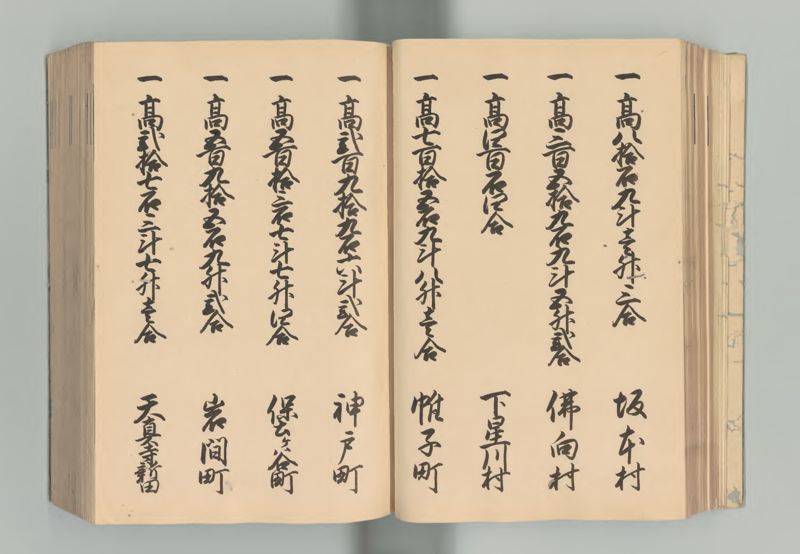 一 高八拾石九斗壱升三合 坂本村
一 高三百五拾九石九斗五升弐合 佛向村
一 高四百石四合 下星川村
一 高七百拾五石九斗八升壱合 帷子町
一 高弐百九拾九石六斗弐合 神戸町
一 高五百拾三石七斗七升四合 保土ヶ谷町
一 高五百九拾五石九升弐合 岩間町
一 高弐拾七石三斗七升壱合 天真寺新田